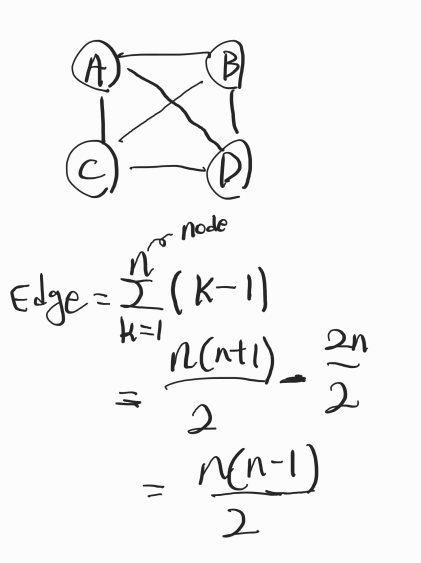 A B
C D
n node
Edge = Σ (k-1)
k=1
= n(n+1)/2 - 2n/2
= n(n-1)/2